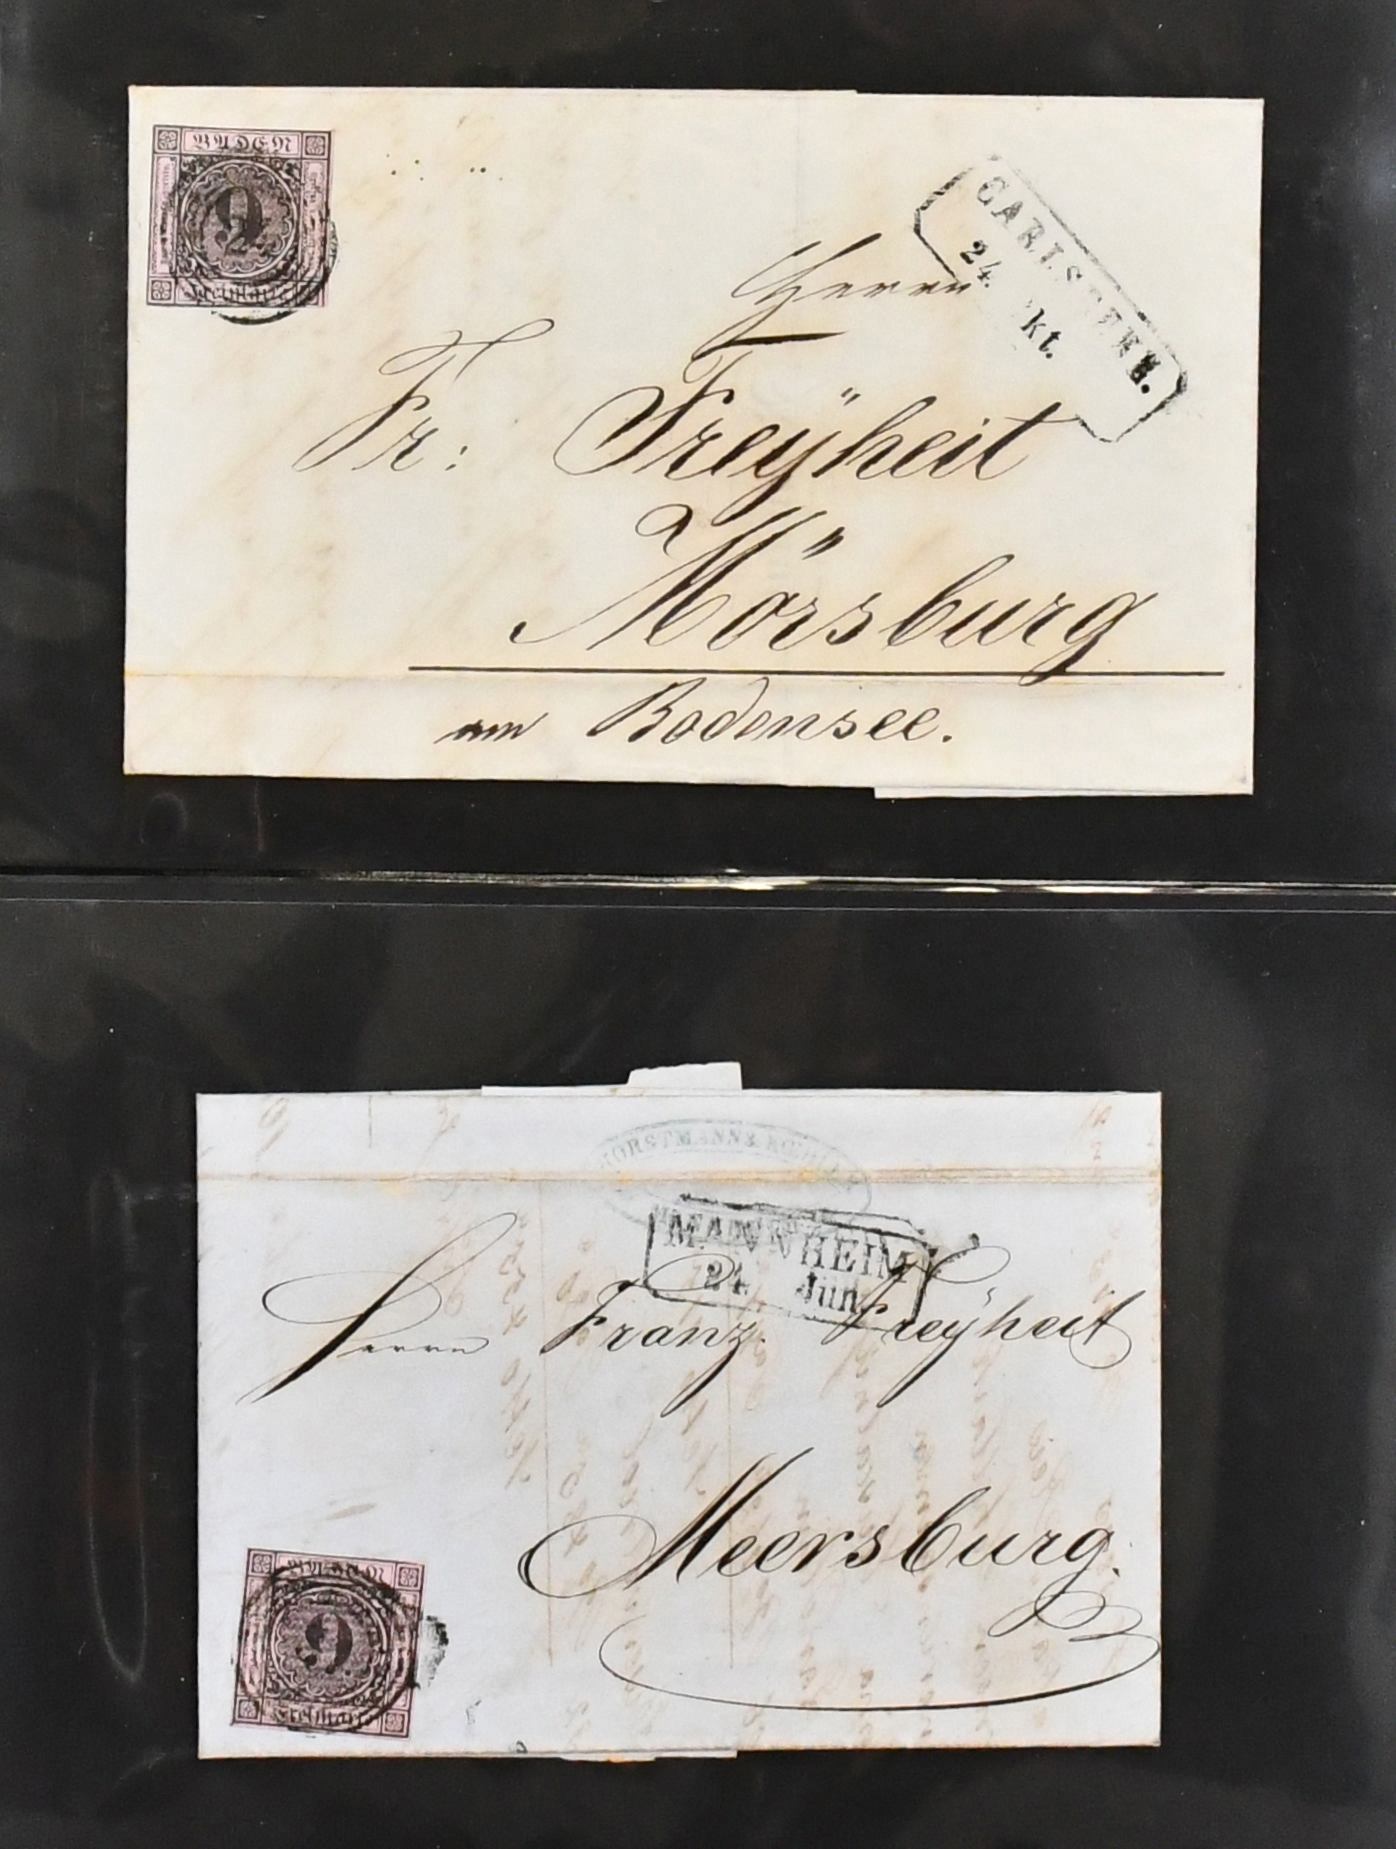 BADEN
9
Freimarke
CARLSRUHE.
24. Okt.
Herrn
Fr: Freÿheit
Mörsburg
am Bodensee.
MANNHEIM
24 Jun.
Herrn Franz Freÿheit
Meersburg.
BADEN
9
Freimarke